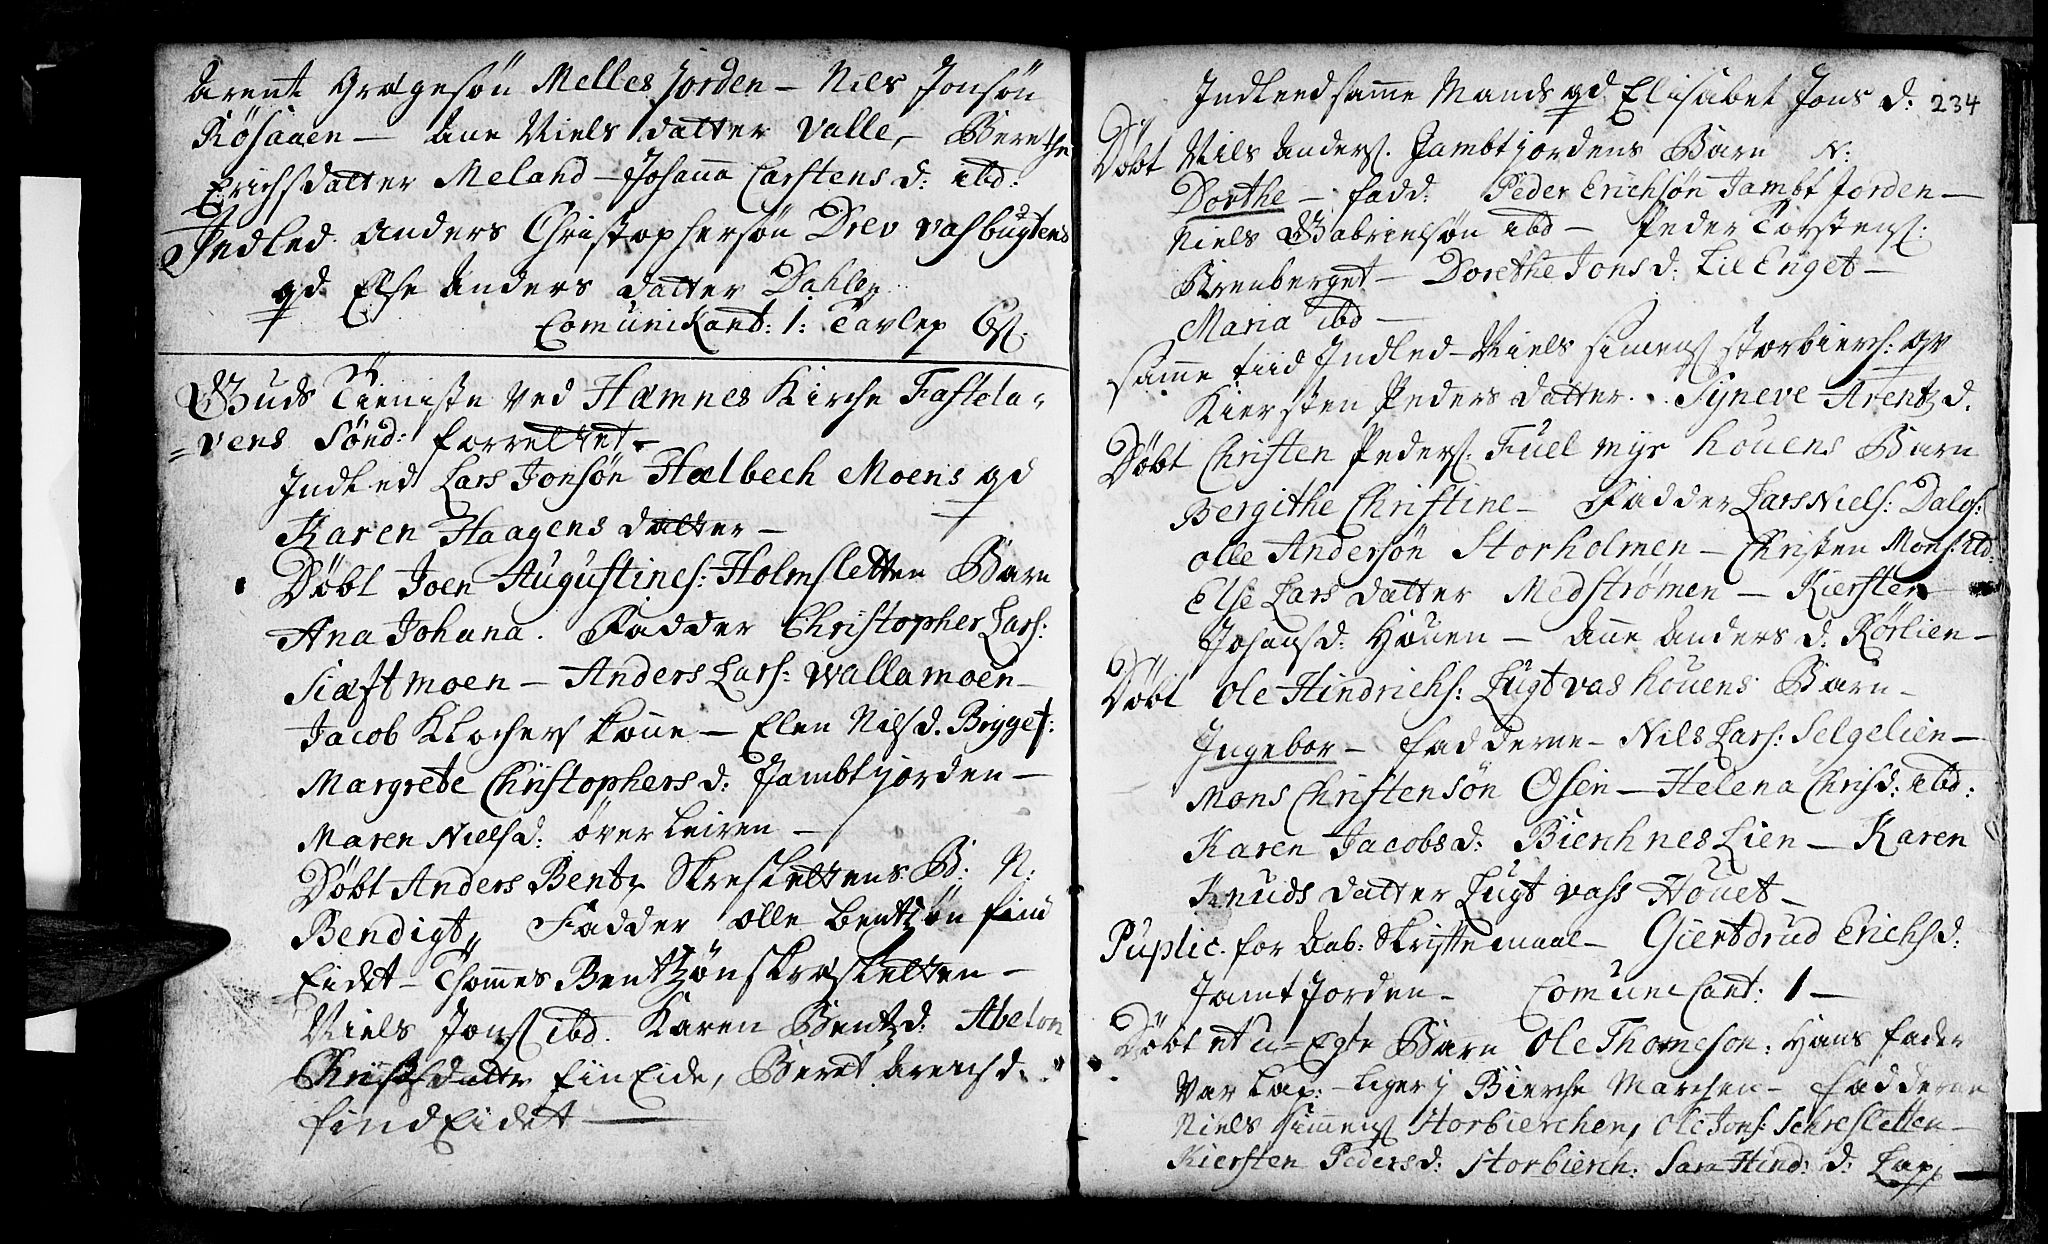 Arent Grægesøn Melles jorden - Nils Jonsøn
Røsaaen - Ane Niels datter Valle, - Berethe
Erichsdatter Meland - Johana Carstens d: ibd:
Indled Anders Christophersøn Drev vasbugtens
qd. Else Anders datter Dahlen
Comunikant: 1: Tavlep
Guds Tieniste ved Hæmnes Kirche Fastela-
=vens Sønd: forrettet -
Indled Lars Jonsøn Halbech Moens qd
Karen Haagens datter -
Døbt Joen Augustines: Holmsletten Barn
Ana Johana. Fadder Christopher Lars:
Siæftmoen - Anders Lars: Wallamoen -
Jacob Klochers kone - Elen Nilsd. Brygges:
Margrete Christophers d: Jambtjorden -
Maren Nielsd: över Leiren -
Døbt Anders Bentz Skreslettens B: N:
Bendigt, Fadder olle Bentzøn find
Eidet - Thomes Bentzøn skresletten -
Niels Jons ibd. Karen Bentzd: Abelon
Christsdatter Fin Eide, Beret Arensd:
find Eidet -
Indleed samme Mands qd Elisabet Jons d: 234
Døbt Nils Anders. Jambtjordens Barn N:
Dorthe - fadd: Peder Erichsøn Jambt Jorden -
Niels Gabrielsøn ibd - Peder Torstens:
Brenberget - Dorethe Jons d: Lil Enget -
Maria ibd -
Samme tiid Indled - Niels Simens Storbierch: qv
Kiersten Peders datter. Syneve Arentz d.
Døbt Christen Peders. Fuel myr houens Barn
Bergithe Christine - Fadder Lars Niels: Dalos:
olle Andersøn Storholmen - Christen Mons: ibd:
Else Lars datter Medstrømen - Kiersten
Johans d: Houen - Ane Anders d. Rørlien -
Døbt Ole Hindrichs: Lugtvas houens Barn -
Ingebor - Fadderne - Nils Lars: Selgelien -
Mons Christensøn Osen - Helena Chrisd: ibd:
Karen Jacobs d: Bierchnes Lien - Karen
Knuds datter Lugt vass Houet -
Puplic. for Aab: Skriftemaal - Giertdrud Erichs d:
Jamt Jorden - Comunicant: 1 -
Døbt et u-Egte Barn Ole Thomeson: Hans fader
var Lap: - Liger i Bierche Marchen - Fadderne
Niels Simens Storbierchen, Ole Jons: Schresletten -
Kiersten Peders d: Storbierch: Sara Hind: d: Lap